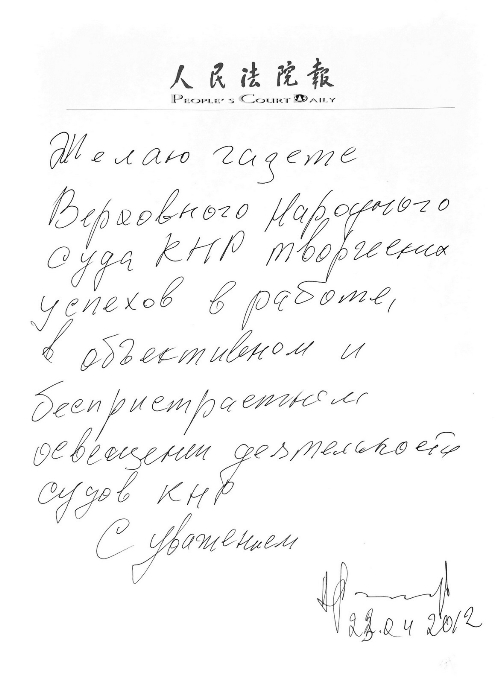 人民法院報
PEOPLE'S COURT DAILY
Желаю газете
Верховного Народного
суда КНР творческих
успехов в работе,
в объективном и
беспристрастном
освещении деятельности
судов КНР
С уважением
22.04 2012